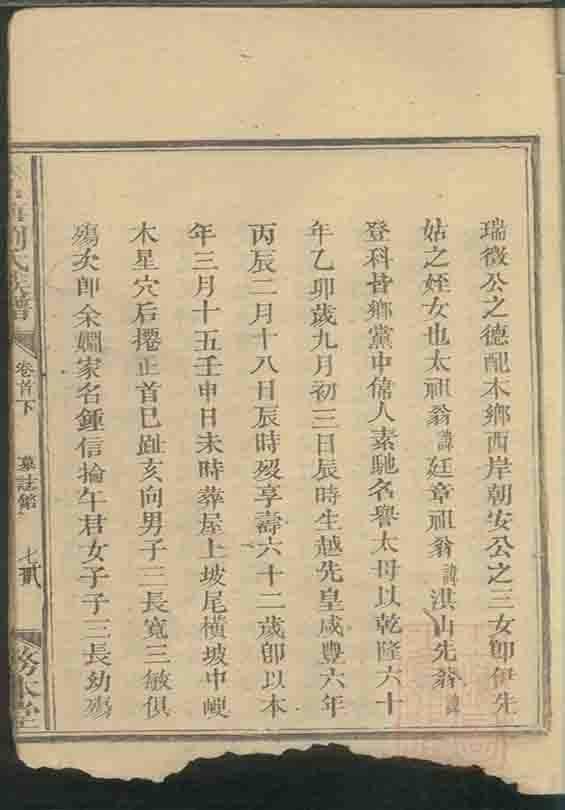 瑞徵公之德配木鄉西岸朝安公之三女卽伊先
姑之姪女也太祖翁諱廷章祖翁諱洪山先翁諱
登科皆鄉黨中偉人素馳名譽太母以乾隆六十
年乙卯歲九月初三日辰時生越先皇咸豐六年
丙辰二月十八日辰時歿享壽六十二歲卽以本
年三月十五壬申日未時葬屋上坡尾橫坡中㟰
木星穴后遷正首巳趾亥向男子三長寬三敏俱
殤次卽余姻家名鍾信掄午君女子子三長幼殤
劉氏族譜
卷首下
墓誌銘
七貳
務本堂